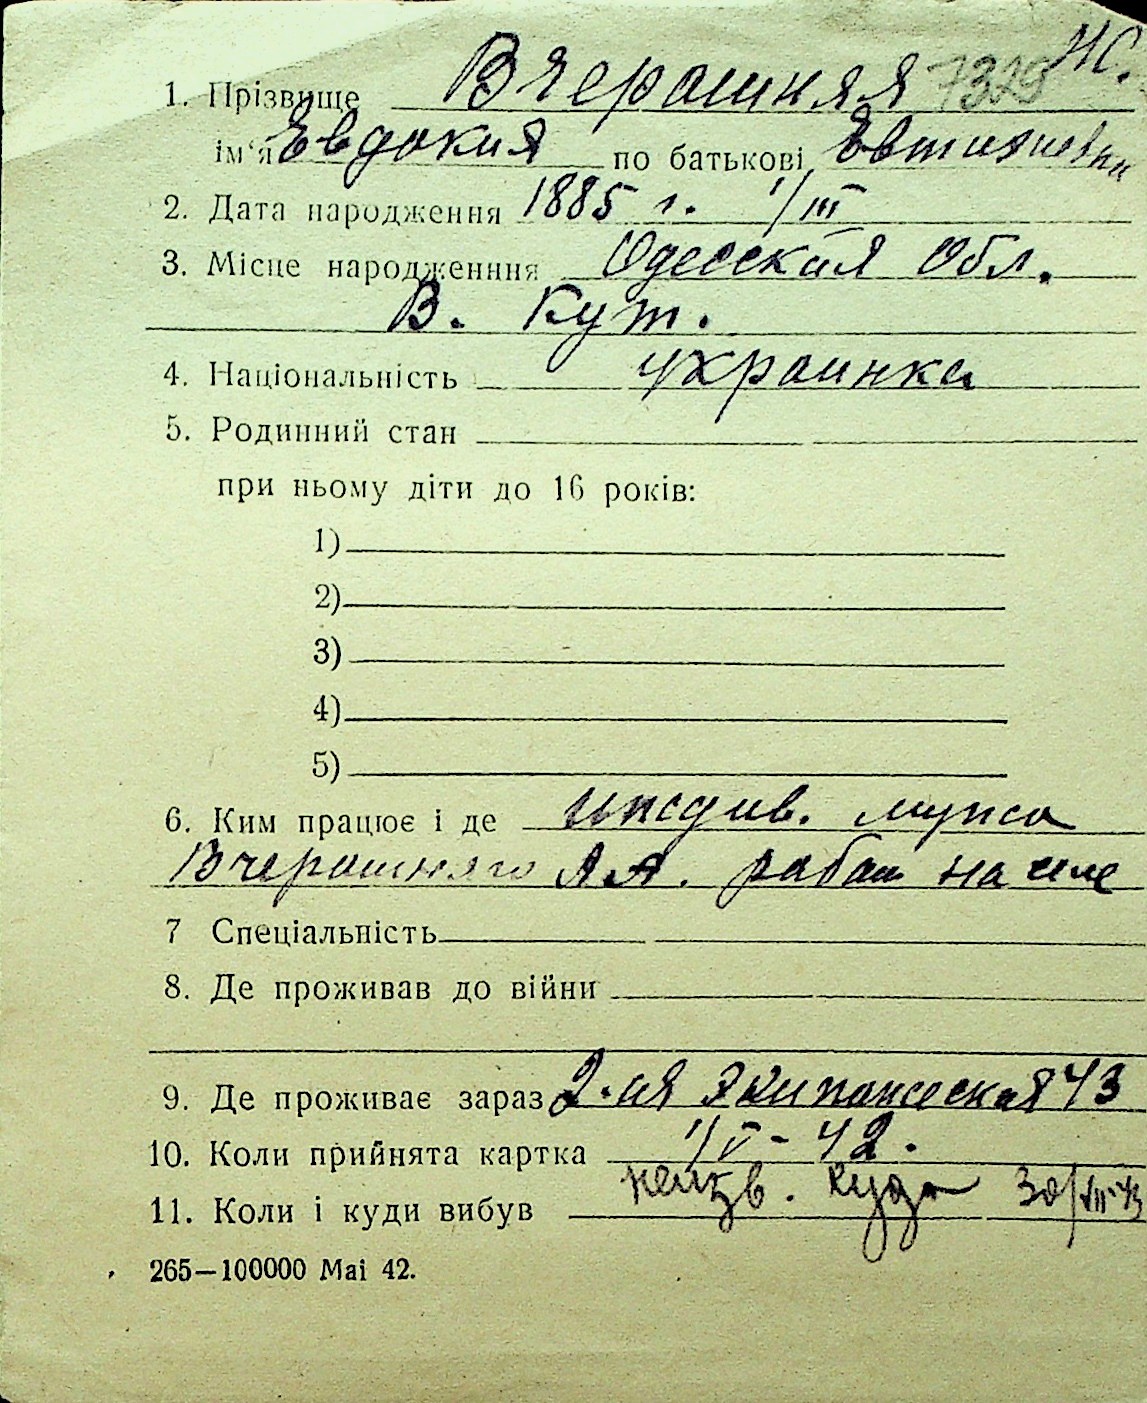 Ж.
1. Прізвище Вчерашняя 7329
ім'я Евдокия по батькові Евтихиевна
2. Дата народження 1885 г. 1/III
3. Місце народженння Одесская Обл.
В. Кут.
4. Національність украинка
5. Родинний стан
при ньому діти до 16 років:
1)
2)
3)
4)
5)
6. Ким працює і де иждив. мужа
Вчерашнего А. А. работ на
7 Спеціальність
8. Де проживав до війни
9. Де проживає зараз 2-ая 43
10. Коли прийнята картка 1/V-42.
11. Коли і куди вибув неизв. куда 30/VII-43
265—100000 Маі 42.